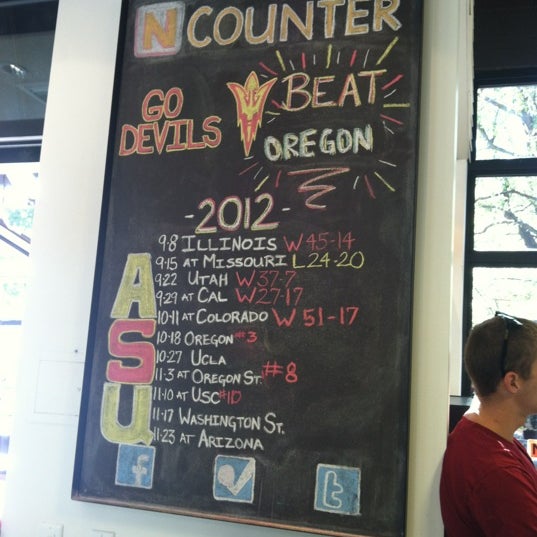 N COUNTER
GO
DEVILS
BEAT
OREGON
-2012-
ASU
9-8 ILLINOIS W 45-14
9-15 AT MISSOURI L 24-20
9-22 UTAH W 37-7
9-29 AT CAL W 27-17
10-11 AT COLORADO W 51-17
10-18 OREGON #3
10-27 UCLA
11-3 AT OREGON ST. #8
11-10 AT USC #10
11-17 WASHINGTON ST.
11-23 AT ARIZONA
f
t